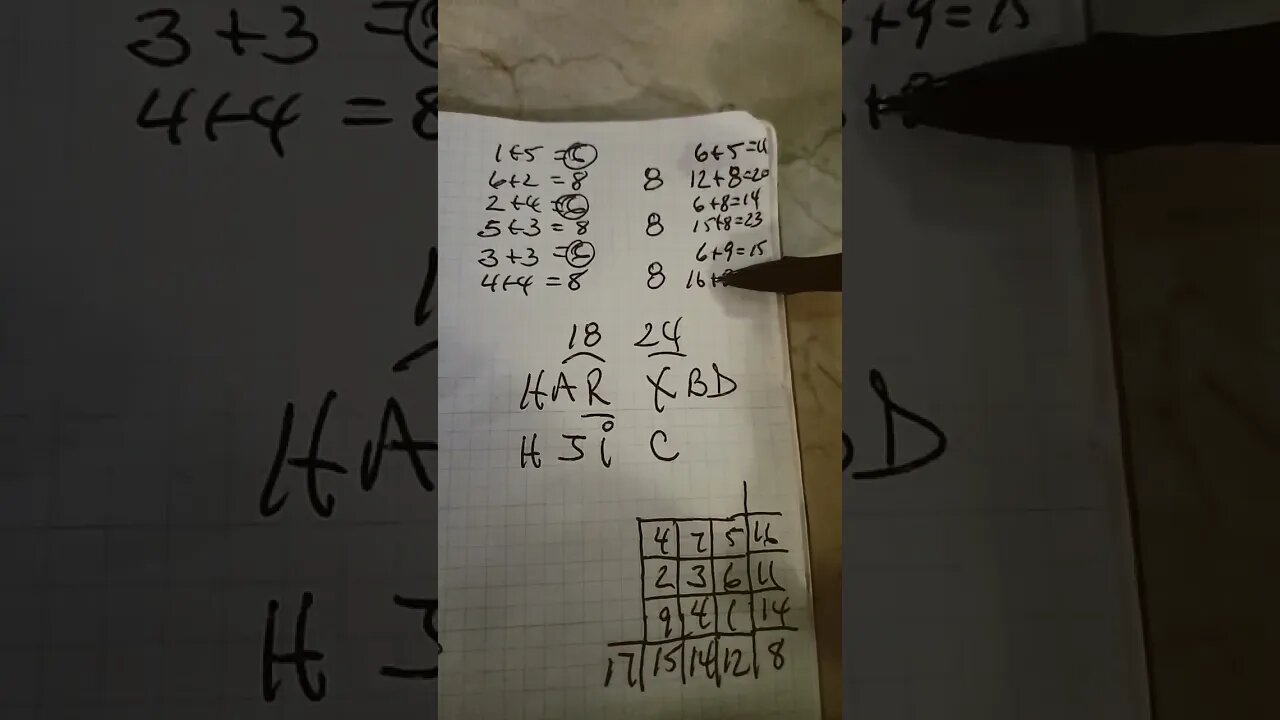 1+5 =6 6+5=11
6+2 = 8 8 12+8=20
2+4 =6 6+8=14
5+3 = 8 8 15+8=23
3+3 =6 6+9=15
4+4 = 8 8 16+
18 24
HAR XBD
H J i C
4 7 5 16
2 3 6 11
9 4 1 14
17 15 14 12 8